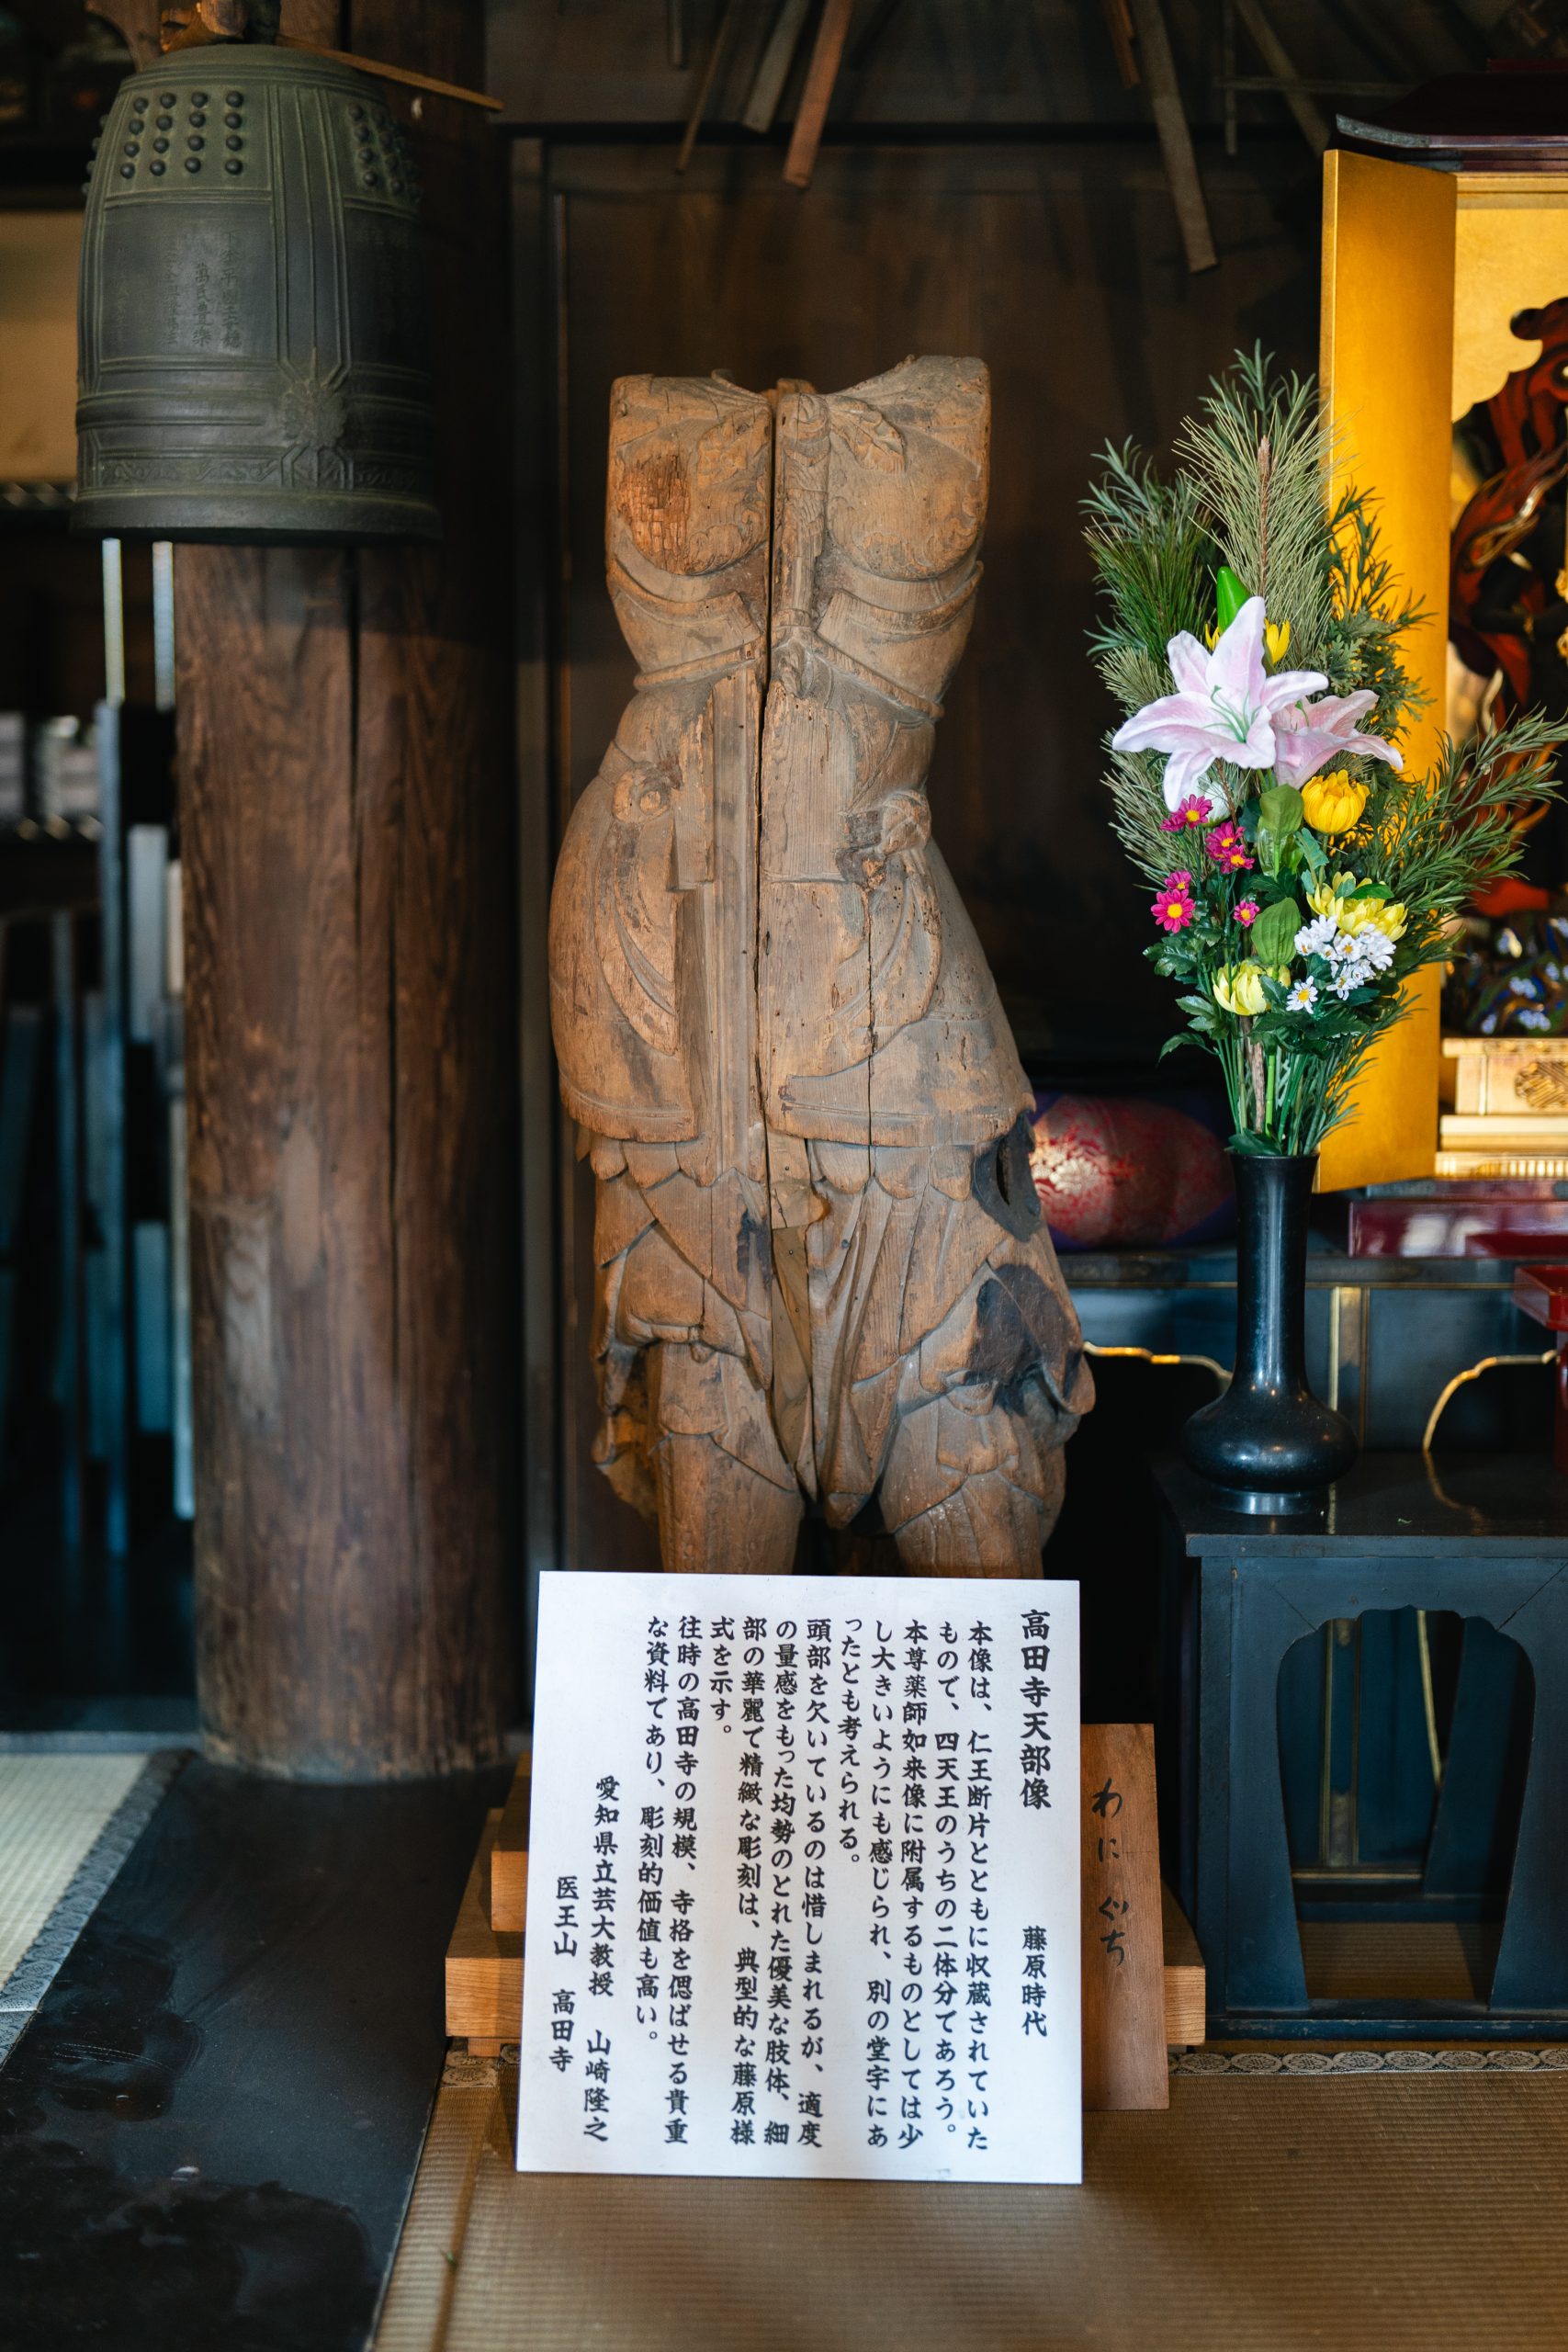 高田寺天部像　藤原時代
本像は、仁王断片とともに収蔵されていた
もので、四天王のうちの二体分であろう。
本尊薬師如来像に附属するものとしては少
し大きいようにも感じられ、別の堂宇にあ
ったとも考えられる。
頭部を欠いているのは惜しまれるが、適度
の量感をもった均勢のとれた優美な肢体、細
部の華麗で精緻な彫刻は、典型的な藤原様
式を示す。
往時の高田寺の規模、寺格を偲ばせる貴重
な資料であり、彫刻的価値も高い。
愛知県立芸大教授　山崎隆之
医王山　高田寺
わにぐち